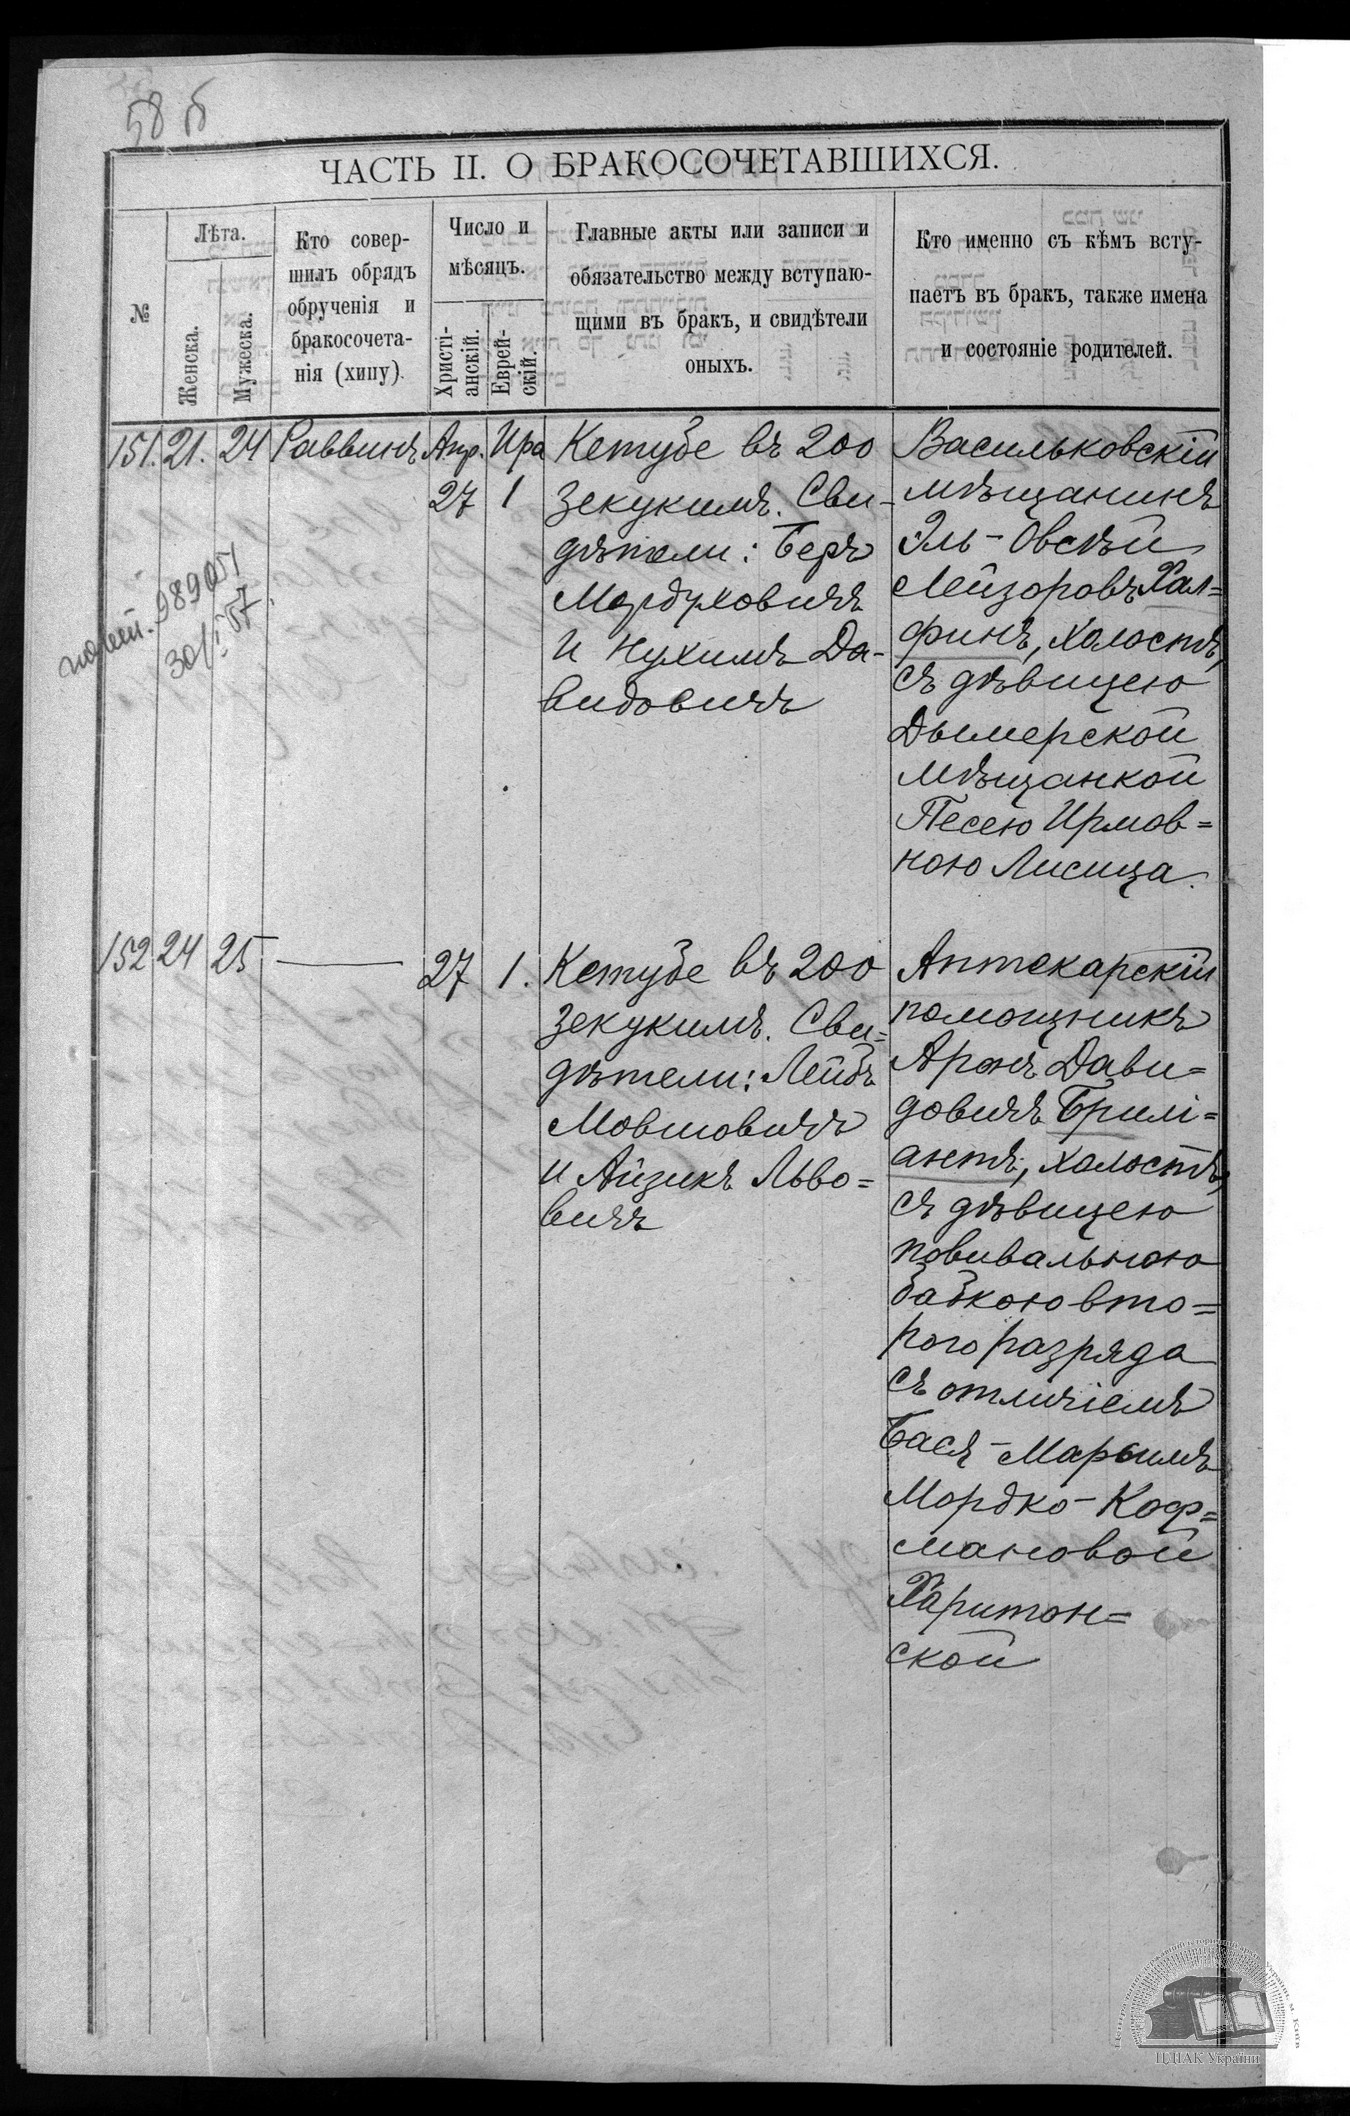 58 б
ЧАСТЬ II. О БРАКОСОЧЕТАВШИХСЯ.
№
Лѣта.
Женска.
Мужеска.
Кто совер-
шилъ обрядъ
обрученія и
бракосочета-
нія (хипу).
Число и
мѣсяцъ.
Христі-
анскій.
Еврей-
скій.
Главные акты или записи и
обязательство между вступаю-
щими въ бракъ, и свидѣтели
оныхъ.
Кто именно съ кѣмъ всту-
паетъ въ бракъ, также имена
и состояніе родителей.
151. 21. 24 Раввинъ Апр. Ира
27 1
Кетубе въ 200
зекукимъ. Сви-
дѣтели: Беръ
Мордуховичъ
и Нухимъ Да-
видовичъ
Васильковскій
мѣщанинъ
Эль-Овсѣй
Лейзоровъ Хал=
финъ, холостъ,
съ дѣвицею
Дымерской
мѣщанкой
Песею Ирмов=
ною Лисица.
152 24 25 — 27 1.
Кетубе въ 200
зекукимъ. Сви=
дѣтели: Лейбъ
Мовшовичъ
и Айзикъ Льво=
вичъ
Аптекарскій
помощникъ
Аронъ Дави=
довичъ Брилі=
антъ, холостъ,
съ дѣвицею
повивальною
бабкою вто=
рого разряда
съ отличіемъ
Бася-Марьимъ
Мордко-Коф=
мановой
Харитон=
ской
ЦДІАК України